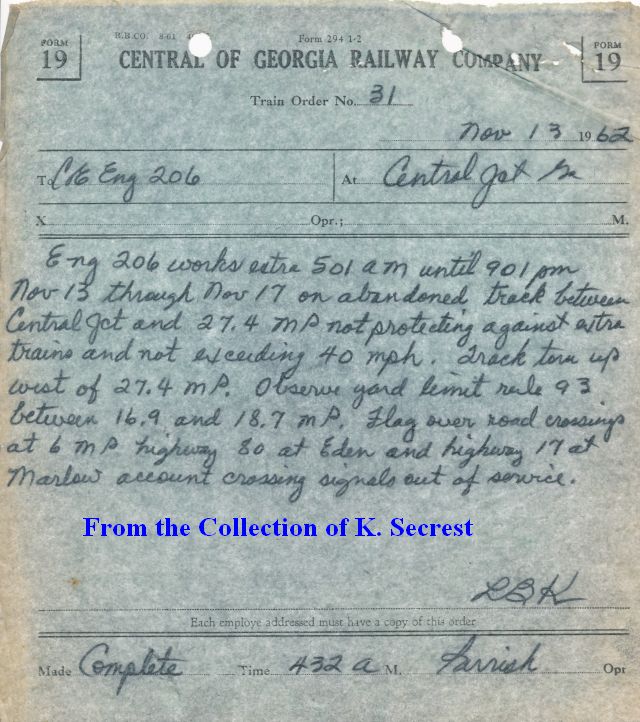 R.B.CO. 8-61 Form 294 1-2
FORM 19 CENTRAL OF GEORGIA RAILWAY COMPANY FORM 19
Train Order No. 31
Nov 13 1962
To C&E Eng 206 At Central Jct Ga
X Opr.; M.
Eng 206 works extra 501 am until 901 pm
Nov 13 through Nov 17 on abandoned track between
Central Jct and 27.4 MP not protecting against extra
trains and not exceeding 40 mph. Track torn up
west of 27.4 MP. Observe yard limit rule 93
between 16.9 and 18.7 MP. Flag over road crossings
at 6 MP highway 80 at Eden and highway 17 at
Marlow account crossing signals out of service.
From the Collection of K. Secrest
LBK
Each employe addressed must have a copy of this order
Made Complete Time 432 a M. Parrish Opr